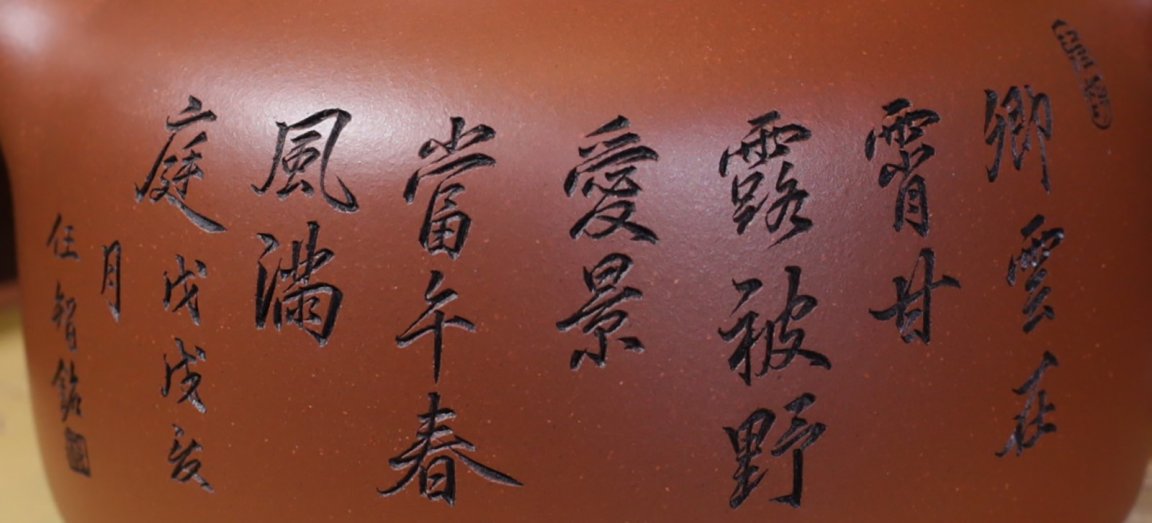 卿雲在
霄甘
露被野
愛景
當午春
風滿
庭戊戌亥
月
任智銘